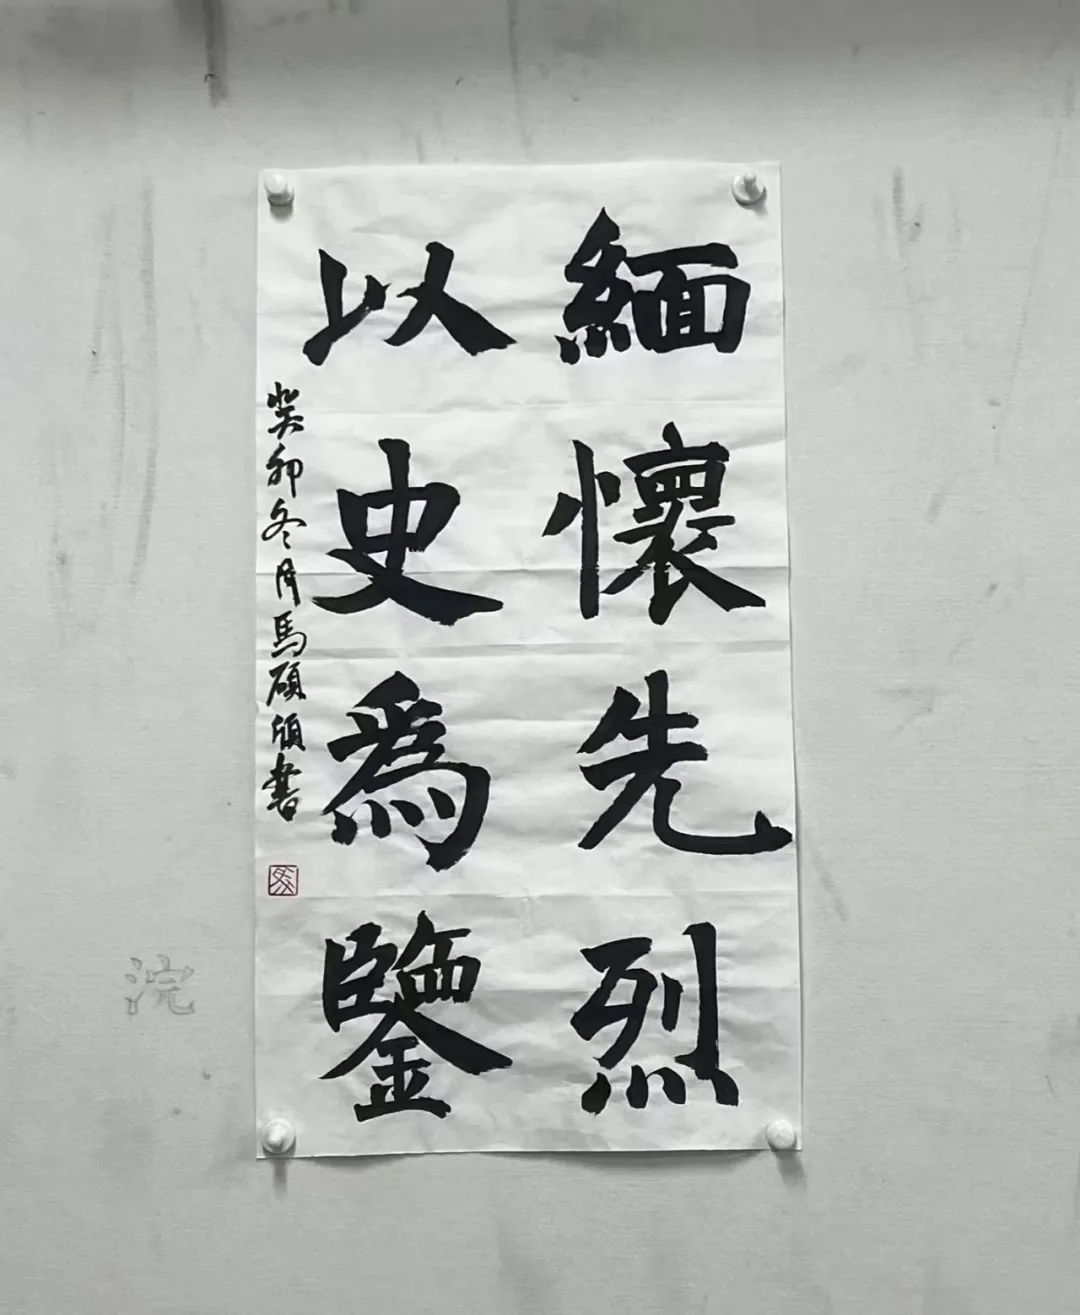 緬懷先烈
以史為鑒
癸卯冬月馬碩頎書
馬
浣